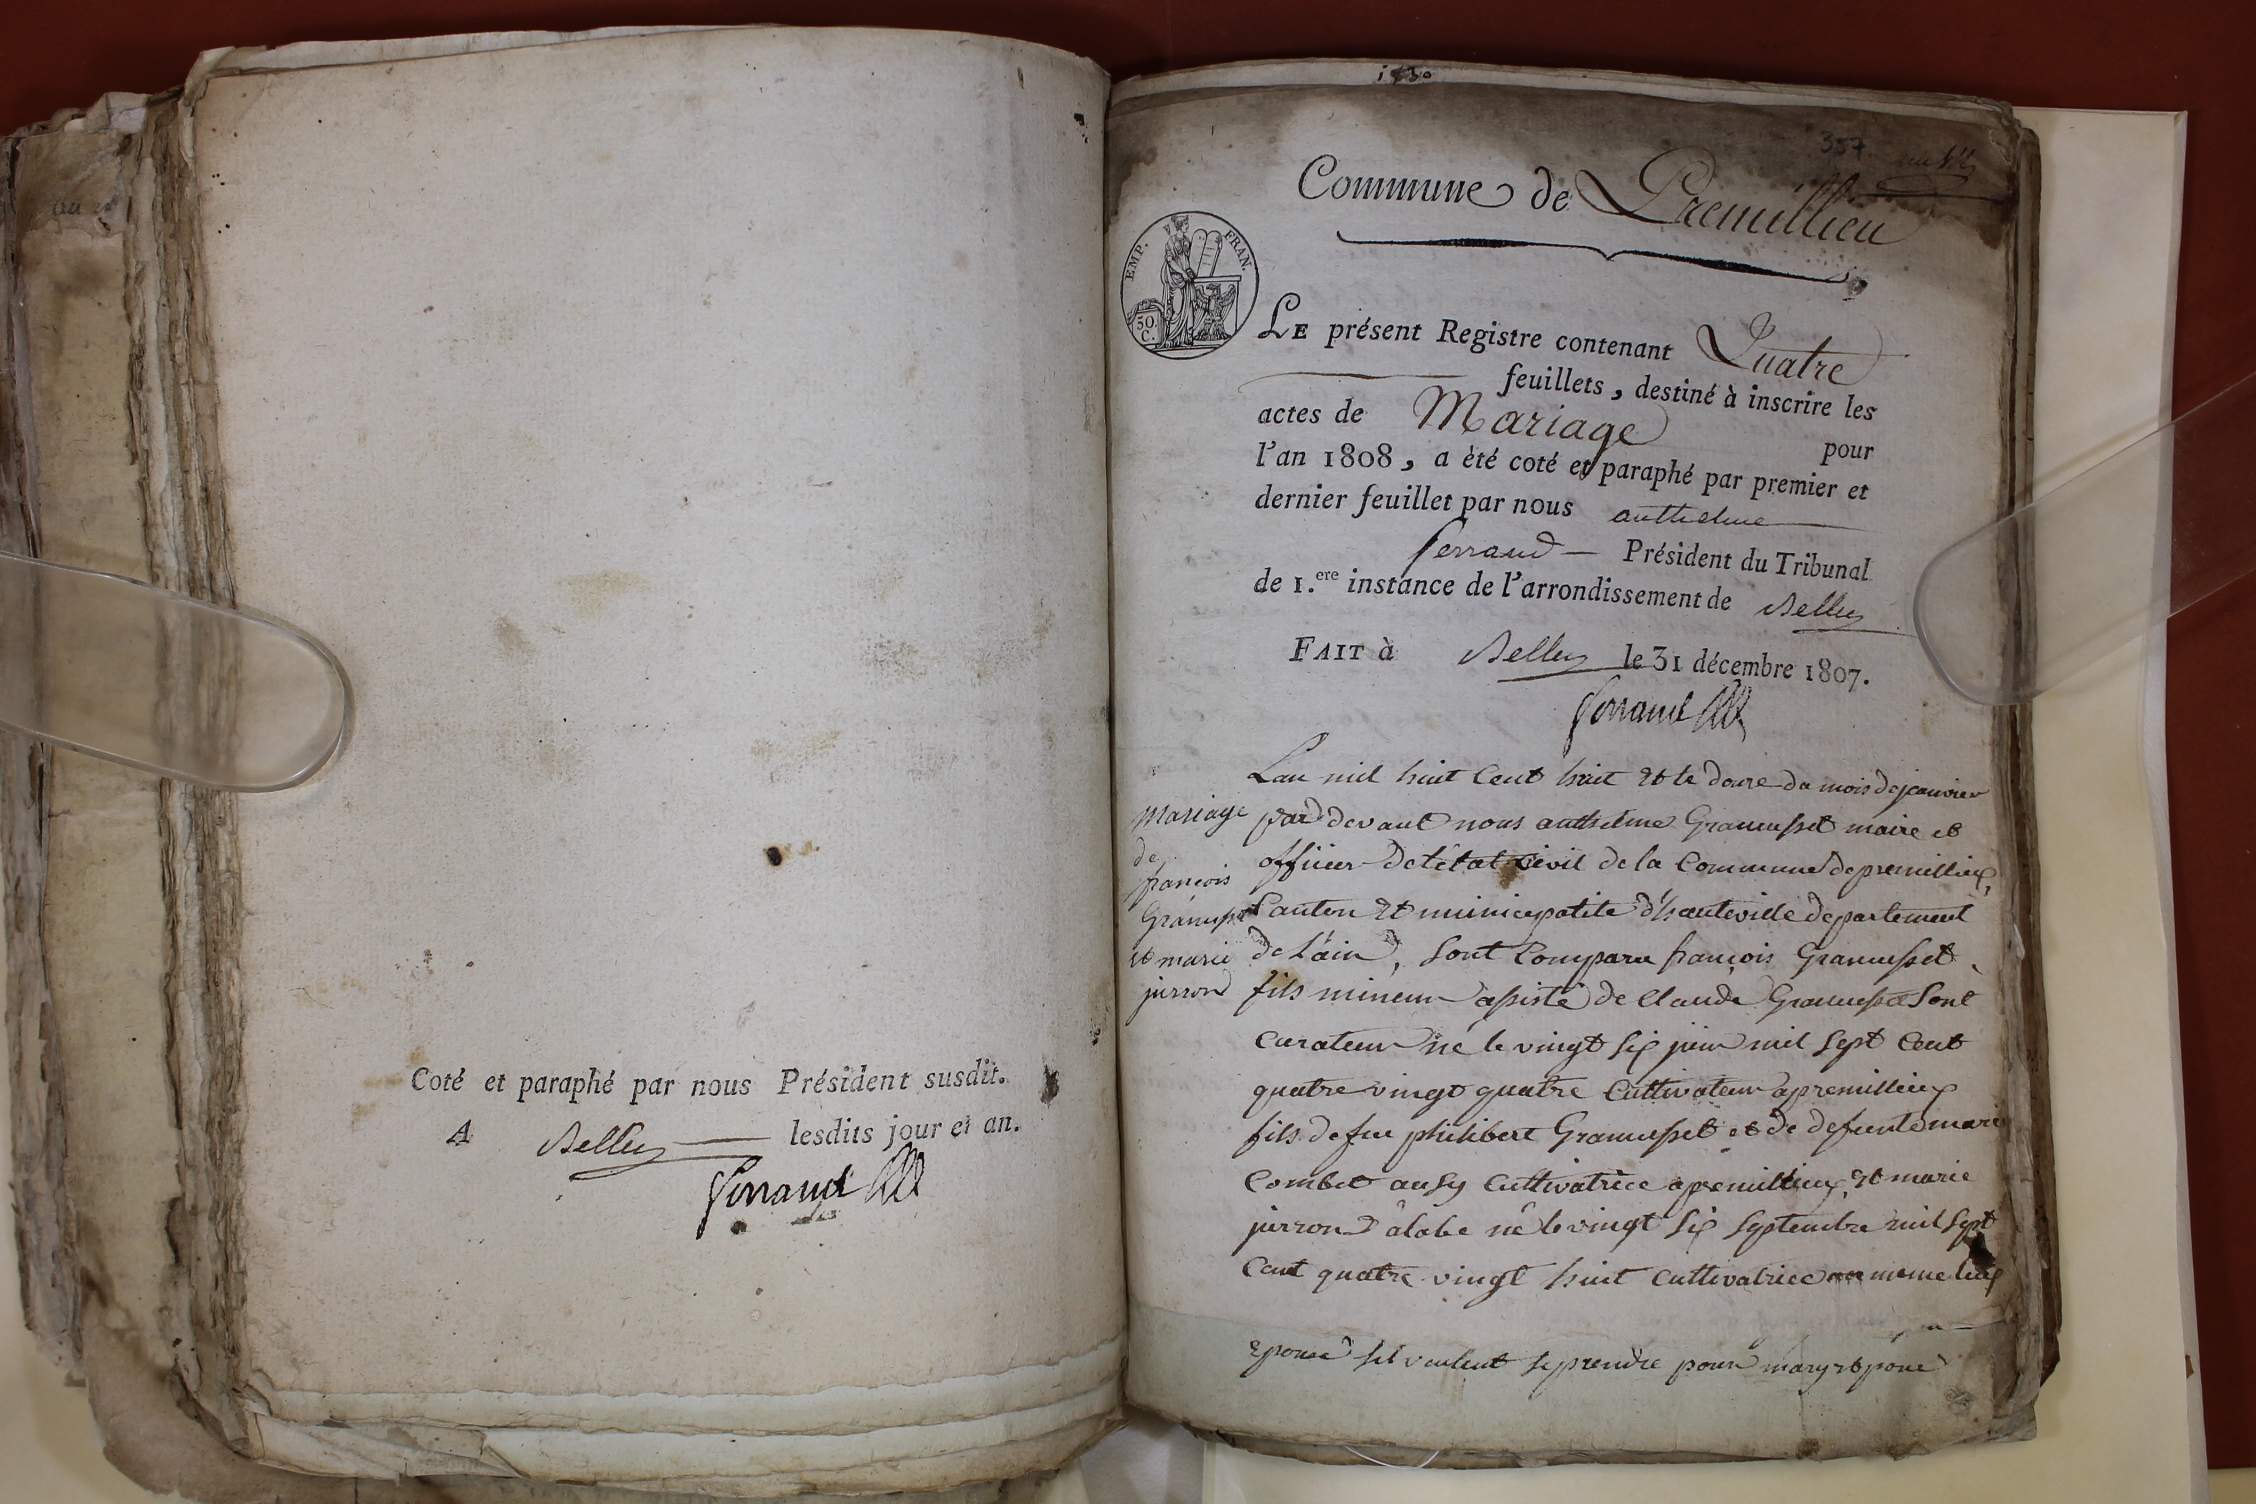 Coté et paraphé par nous Président susdit.
A Belley lesdits jour et an.
Ferraud
357
Commune de Prémillieu
EMP. FRAN.
50.
C.
LE présent Registre contenant Quatre
feuillets, destiné à inscrire les
actes de Mariage pour
l'an 1808, a été coté et paraphé par premier et
dernier feuillet par nous anthelme
ferraud Président du Tribunal
de 1.ere instance de l'arrondissement de Belley
FAIT à Belley le 31 décembre 1807.
Ferraud
Mariage
de
francois
Gramusset
et marie
jurron
Lan mil huit Cent huit et le douze du mois de janvier
par devant nous anthelme Gramusset maire et
officier de létat civil de la Commune de premillieux,
Canton et municipalite d'hauteville departement
de L'ain, sont Comparu françois Gramusset
fils mineur asisté de Claude Gramusset sont
Curateur né le vingt six juin mil sept Cent
quatre vingt quatre Cultivateur a premillieux
fils de feu philibert Gramusset et de defunte marie
Combet ausy Cultivatrice a premillieux, et marie
jurron né le vingt six septembre mil sept
Cent quatre vingt huit Cultivatrice au meme lieux
epouse sil veulent se prendre pour mary et